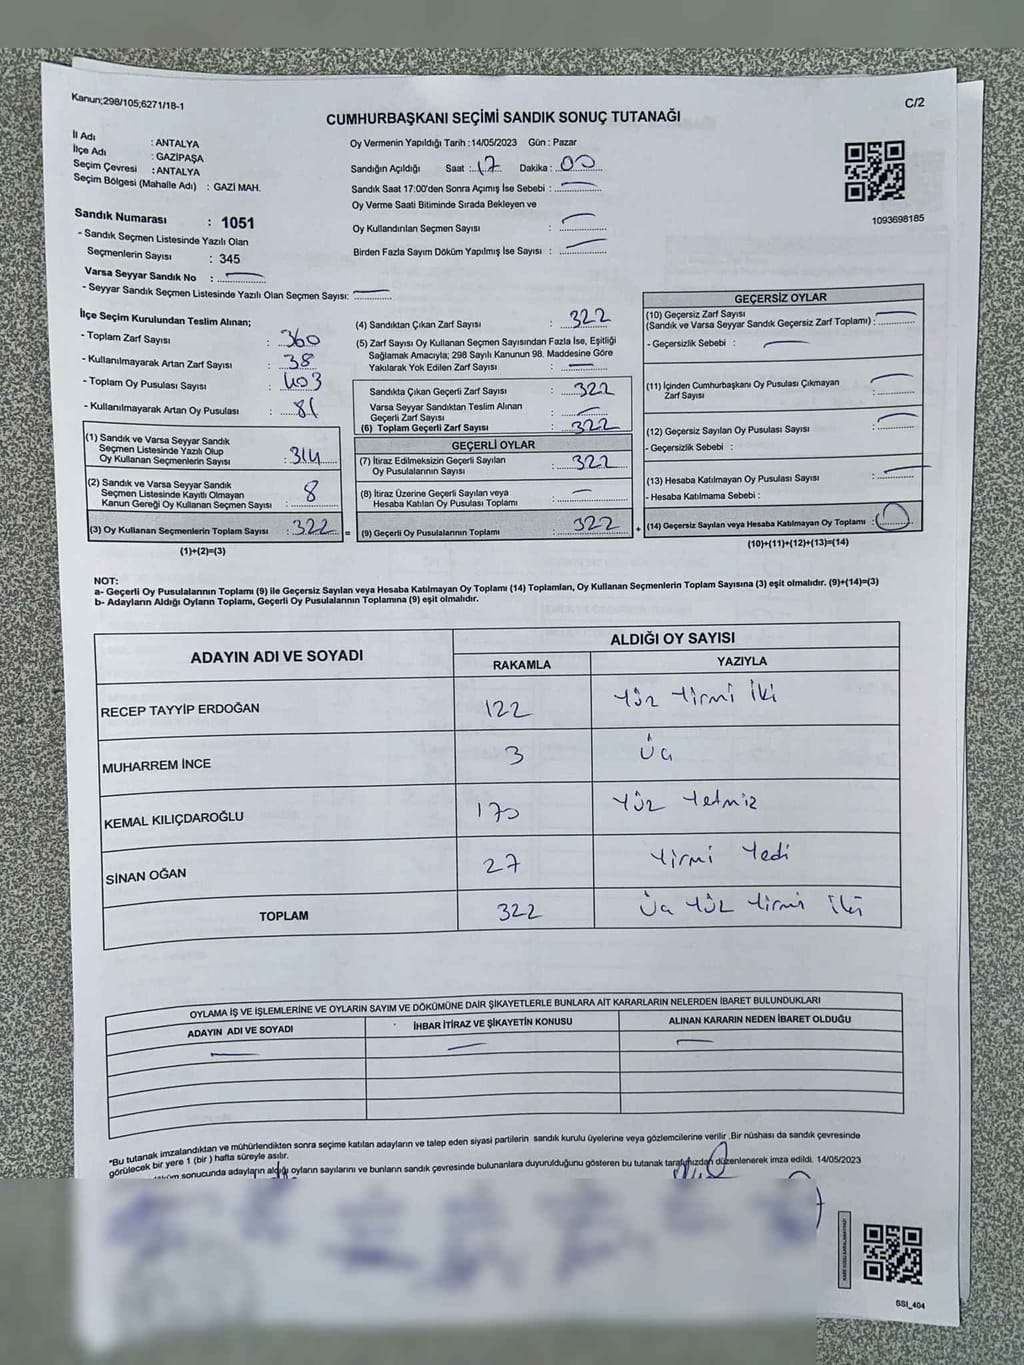 Kanun;298/105;6271/18-1
C/2
CUMHURBAŞKANI SEÇİMİ SANDIK SONUÇ TUTANAĞI
İl Adı : ANTALYA
İlçe Adı : GAZİPAŞA
Seçim Çevresi : ANTALYA
Seçim Bölgesi (Mahalle Adı) : GAZİ MAH.
Oy Vermenin Yapıldığı Tarih :14/05/2023 Gün : Pazar
Sandığın Açıldığı Saat : 17 Dakika : 00
Sandık Saat 17:00'den Sonra Açımış İse Sebebi :
Oy Verme Saati Bitiminde Sırada Bekleyen ve
Oy Kullandırılan Seçmen Sayısı :
Birden Fazla Sayım Döküm Yapılmış İse Sayısı :
1093698185
Sandık Numarası : 1051
- Sandık Seçmen Listesinde Yazılı Olan
Seçmenlerin Sayısı : 345
Varsa Seyyar Sandık No :
- Seyyar Sandık Seçmen Listesinde Yazılı Olan Seçmen Sayısı:
İlçe Seçim Kurulundan Teslim Alınan;
- Toplam Zarf Sayısı : 360
- Kullanılmayarak Artan Zarf Sayısı : 38
- Toplam Oy Pusulası Sayısı : 403
- Kullanılmayarak Artan Oy Pusulası : 81
(1) Sandık ve Varsa Seyyar Sandık
Seçmen Listesinde Yazılı Olup
Oy Kullanan Seçmenlerin Sayısı : 314
(2) Sandık ve Varsa Seyyar Sandık
Seçmen Listesinde Kayıtlı Olmayan
Kanun Gereği Oy Kullanan Seçmen Sayısı : 8
(3) Oy Kullanan Seçmenlerin Toplam Sayısı : 322 =
(1)+(2)=(3)
(4) Sandıktan Çıkan Zarf Sayısı : 322
(5) Zarf Sayısı Oy Kullanan Seçmen Sayısından Fazla İse, Eşitliği
Sağlamak Amacıyla; 298 Sayılı Kanunun 98. Maddesine Göre
Yakılarak Yok Edilen Zarf Sayısı :
Sandıkta Çıkan Geçerli Zarf Sayısı : 322
Varsa Seyyar Sandıktan Teslim Alınan
Geçerli Zarf Sayısı :
(6) Toplam Geçerli Zarf Sayısı : 322
GEÇERLİ OYLAR
(7) İtiraz Edilmeksizin Geçerli Sayılan
Oy Pusulalarının Sayısı : 322
(8) İtiraz Üzerine Geçerli Sayılan veya
Hesaba Katılan Oy Pusulası Toplamı :
(9) Geçerli Oy Pusulalarının Toplamı : 322 +
GEÇERSİZ OYLAR
(10) Geçersiz Zarf Sayısı
(Sandık ve Varsa Seyyar Sandık Geçersiz Zarf Toplamı) :
- Geçersizlik Sebebi :
(11) İçinden Cumhurbaşkanı Oy Pusulası Çıkmayan
Zarf Sayısı :
(12) Geçersiz Sayılan Oy Pusulası Sayısı :
- Geçersizlik Sebebi :
(13) Hesaba Katılmayan Oy Pusulası Sayısı :
- Hesaba Katılmama Sebebi :
(14) Geçersiz Sayılan veya Hesaba Katılmayan Oy Toplamı : 0
(10)+(11)+(12)+(13)=(14)
NOT:
a- Geçerli Oy Pusulalarının Toplamı (9) ile Geçersiz Sayılan veya Hesaba Katılmayan Oy Toplamı (14) Toplamları, Oy Kullanan Seçmenlerin Toplam Sayısına (3) eşit olmalıdır. (9)+(14)=(3)
b- Adayların Aldığı Oyların Toplamı, Geçerli Oy Pusulalarının Toplamına (9) eşit olmalıdır.
ADAYIN ADI VE SOYADI
ALDIĞI OY SAYISI
RAKAMLA YAZIYLA
RECEP TAYYİP ERDOĞAN 122 Yüz Yirmi İki
MUHARREM İNCE 3 Üç
KEMAL KILIÇDAROĞLU 170 Yüz Yetmiz
SİNAN OĞAN 27 Yirmi Yedi
TOPLAM 322 Üç Yüz Yirmi İki
OYLAMA İŞ VE İŞLEMLERİNE VE OYLARIN SAYIM VE DÖKÜMÜNE DAİR ŞİKAYETLERLE BUNLARA AİT KARARLARIN NELERDEN İBARET BULUNDUKLARI
ADAYIN ADI VE SOYADI İHBAR İTİRAZ VE ŞİKAYETİN KONUSU ALINAN KARARIN NEDEN İBARET OLDUĞU
*Bu tutanak imzalandıktan ve mühürlendikten sonra seçime katılan adayların ve talep eden siyasi partilerin sandık kurulu üyelerine veya gözlemcilerine verilir .Bir nüshası da sandık çevresinde
görülecek bir yere 1 (bir ) hafta süreyle asılır.
sonucunda adayların aldığı oyların sayılarını ve bunların sandık çevresinde bulunanlara duyurulduğunu gösteren bu tutanak tarafımızdan düzenlenerek imza edildi. 14/05/2023
SSI_404